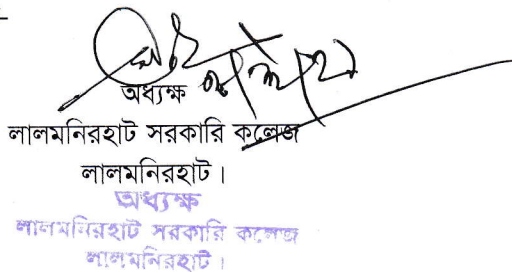 অধ্যক্ষ
লালমনিরহাট সরকারি কলেজ
লালমনিরহাট।
অধ্যক্ষ
লালমনিরহাট সরকারি কলেজ
লালমনিরহাট।